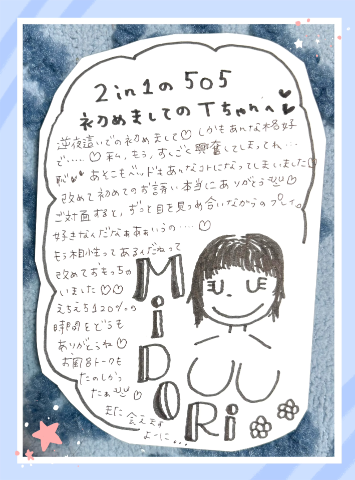 2in1の505
初めましてのTちゃんへ
逆夜這いでの初めまして♡しかもあんな格好
で……♡私、もう、すんごく興奮してしまってね…
あそこもベッドもあんなコトになってしまいました♡
改めて初めてのお誘い本当にありがとう♡
ご対面すると、ずっと目を見つめ合いながらのプレイ。
好きなんだなぁぁぁいうの…♡
もう相性ってあるんだねって
改めておもっちゃ
いました♡♡
えちえち120%の
時間をどうも
ありがとうね♡
お風呂トークも
たのしかっ
たぁ♡
また会えます
ように…
MiDORi